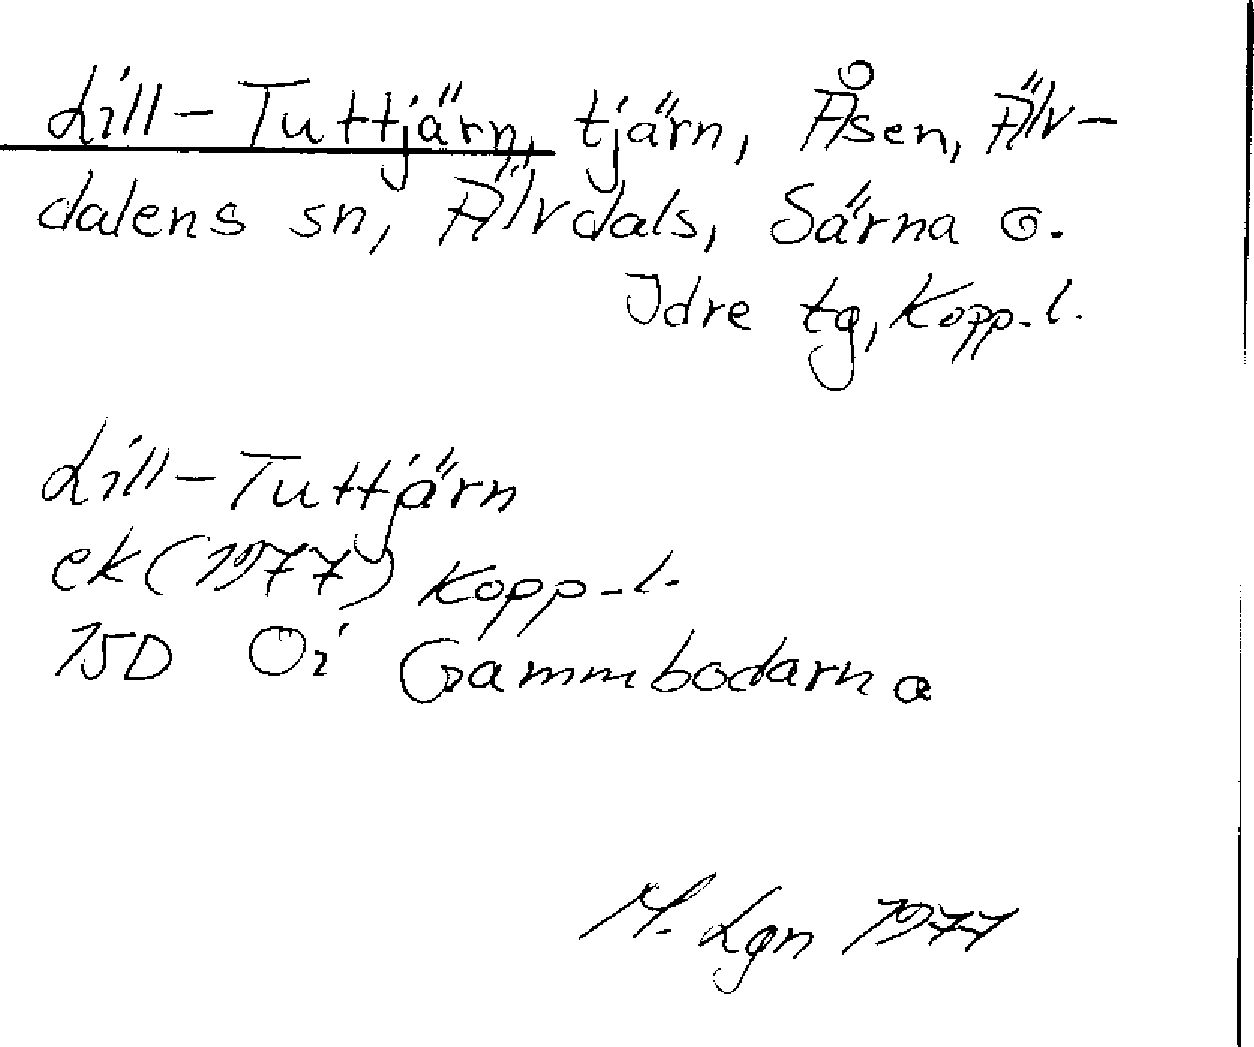 Lill-Tuttjärn, tjärn, Åsen, Älv-
dalens sn, Älvdals, Särna o.
Idre tg, Kopp.l.
Lill-Tuttjärn
ek (1977) Kopp.l.
15D 0i Gammbodarna
M. Lgn 1977